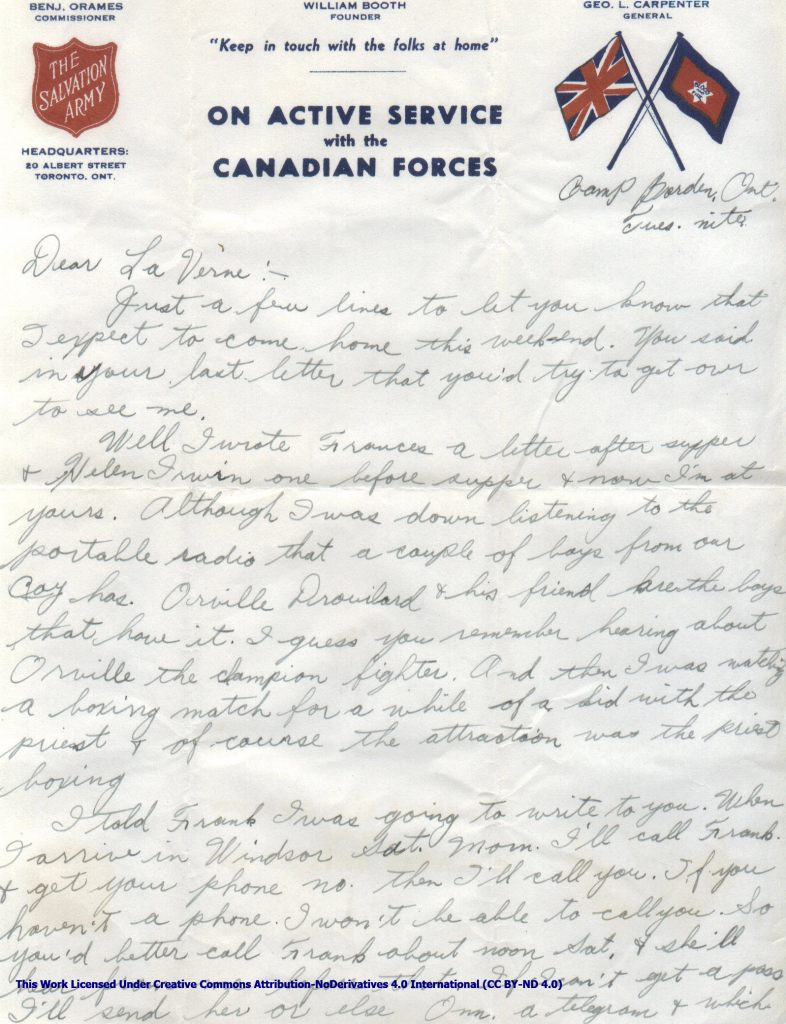 BENJ. ORAMES
COMMISSIONER
WILLIAM BOOTH
FOUNDER
GEO. L. CARPENTER
GENERAL
"Keep in touch with the folks at home"
THE
SALVATION
ARMY
ON ACTIVE SERVICE
with the
CANADIAN FORCES
HEADQUARTERS:
20 ALBERT STREET
TORONTO, ONT.
Camp Borden, Ont.
Tues. nite
Dear La Verne :-
Just a few lines to let you know that
I expect to come home this week-end. You said
in your last letter that you'd try to get over
to see me.
Well I wrote Frances a letter after supper
& Helen Irwin one before supper & now I'm at
yours. Although I was down listening to the
portable radio that a couple of boys from our
Coy has. Orville Drouilard & his friend are the boys
that have it. I guess you remember hearing about
Orville the champion fighter. And then I was watching
a boxing match for a while of a kid with the
priest & of course the attraction was the priest
boxing
I told Frank I was going to write to you. When
I arrive in Windsor Sat. Morn. I'll call Frank.
& get your phone no. then I'll call you. If you
haven't a phone I won't be able to call you. So
you'd better call Frank about noon Sat. & she'll
hear from me before that. If I can't get a pass
This Work Licensed Under Creative Commons Attribution-NoDerivatives 4.0 International (CC BY-ND 4.0)
I'll send her or else a telegram & which